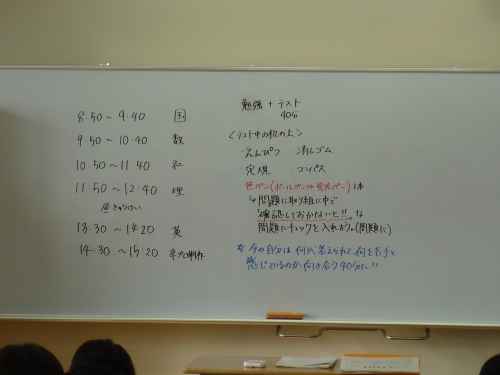 8:50～9:40 国
9:50～10:40 数
10:50～11:40 社
11:50～12:40 理
昼きゅうけい
13:30～14:20 英
14:30～15:20
勉強 + テスト
40分
〈テスト中の机の上〉
えんぴつ 消しゴム
定規 コンパス
色ペン(ボールペンか蛍光ペン)1本
↳問題に取り組む中で
"確認しておかないと!!"な
問題にチェックを入れよう。(問題に)
☆今の自分は何が答えられて何を苦手と
感じているのか、向き合う40分に!!